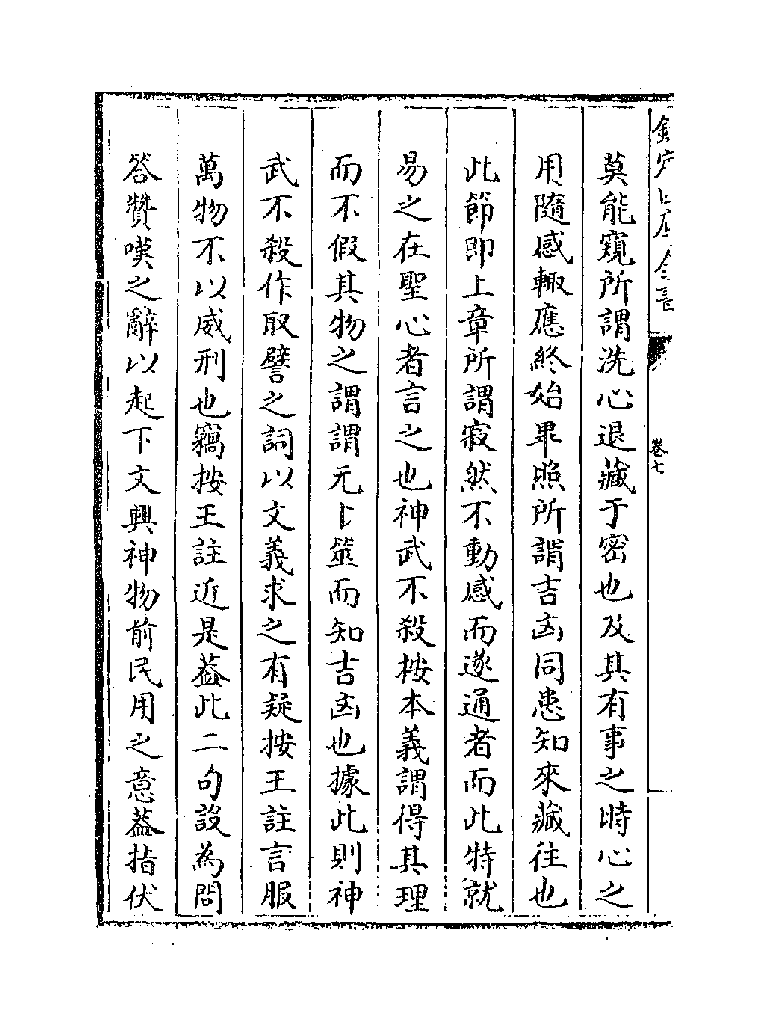 欽定四庫全書
卷七
莫能窺所謂洗心退藏于密也及其有事之時心之
用隨感輙應終始畢照所謂吉凶同患知來藏往也
此節即上章所謂寂然不動感而遂通者而此特就
易之在聖心者言之也神武不殺按本義謂得其理
而不假其物之謂謂无卜筮而知吉凶也據此則神
武不殺作取譬之詞以文義求之有疑按王註言服
萬物不以威刑也竊按王註近是葢此二句設為問
答贊嘆之辭以起下文興神物前民用之意葢指伏